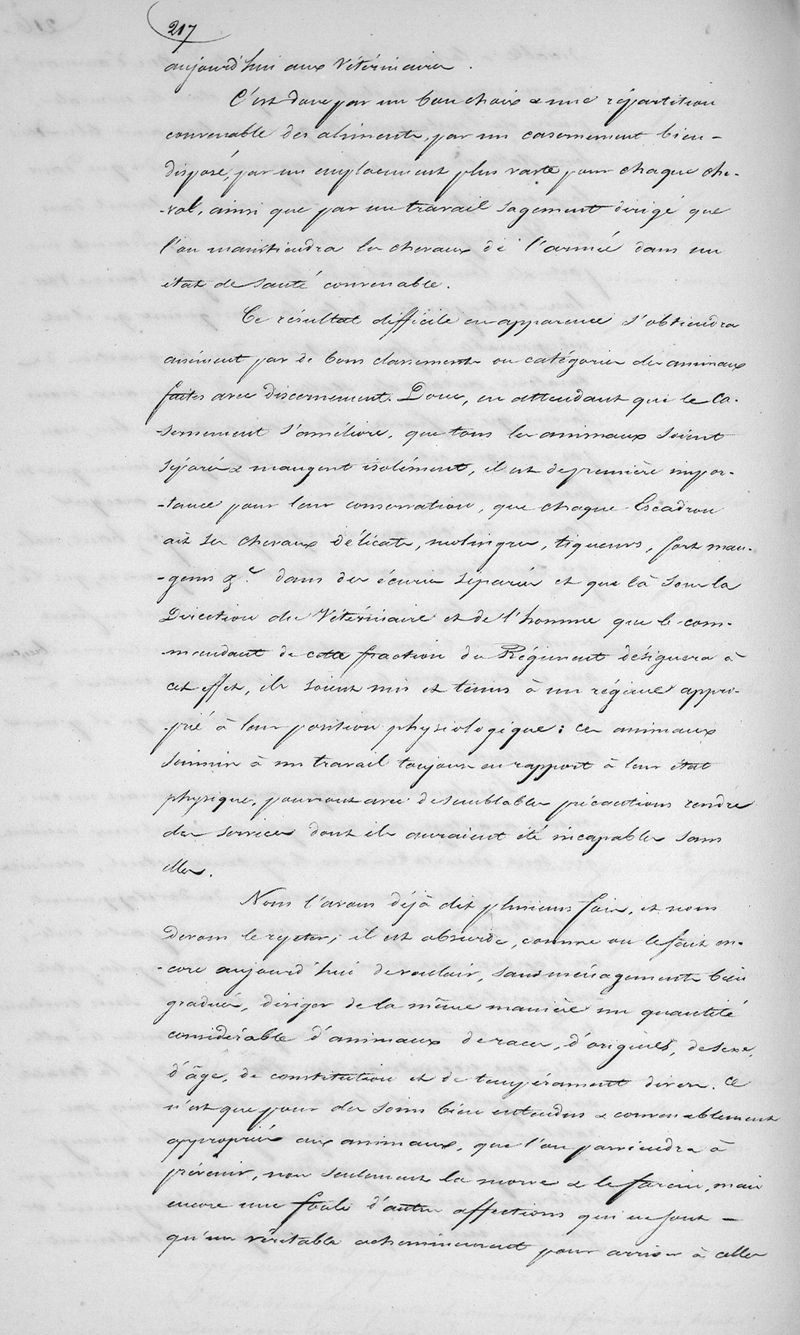 217
aujourd'hui aux Vétérinaires.
C'est donc par un bon choix & une répartition
convenable des aliments, par un casernement bien-
disposé, par un emplacement plus vaste pour chaque che-
-val, ainsi que par un travail sagement dirigé que
l'on maintiendra les chevaux de l'armée dans un
état de santé convenable.
Ce résultat difficile en apparence s'obtiendra
aisément par de bons classements ou catégories des animaux
faites avec discernement. Donc, en attendant que le Ca-
-sernement s'améliore, que tous les animaux soient
séparés & mangent isolément, il est de première impor-
-tance pour leur conservation, que chaque Escadron
ait ses chevaux délicats, malingres, tiqueurs, fort man-
-geurs &a. dans des écuries séparées et que là sous la
Direction du Vétérinaire et de l'homme que le com-
-mandant de cette fraction du Régiment désignera à
cet effet, ils soient mis et tenus à un régime appro-
-prié à leur position physiologique; ces animaux
soumis à un travail toujours en rapport à leur état
physique, pourront avec de semblables précautions rendre
des services dont ils auraient été incapables sans
elles.
Nous l'avons déjà dit plusieurs fois, et nous
devons le répéter; il est absurde, comme on le fait en-
-core aujourd'hui de vouloir, sans ménagements bien
gradués, diriger de la même manière un quantité
considérable d'animaux de races, d'origines, de sexe,
d'âge, de constitution et de tempérament divers. Ce
n'est que pour des soins bien entendus & convenablement
appropriés aux animaux, que l'on parviendra à
prévenir, non seulement la morve & le farcin, mais
encore une foule d'autres affections qui ne sont -
qu'un véritable acheminement pour arriver à celles